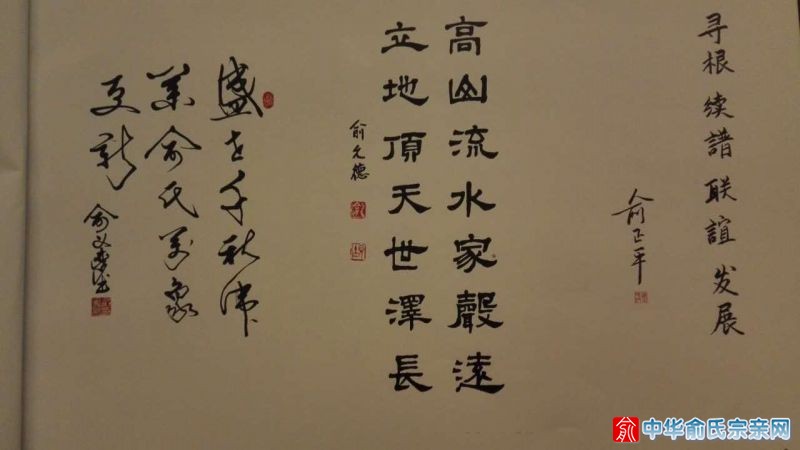 寻根 续譜 联誼 发展
俞正平
高山流水家聲遠
立地頂天世澤長
俞允德
盛世千秋伟
業俞氏万象
更新
中华俞氏宗亲网